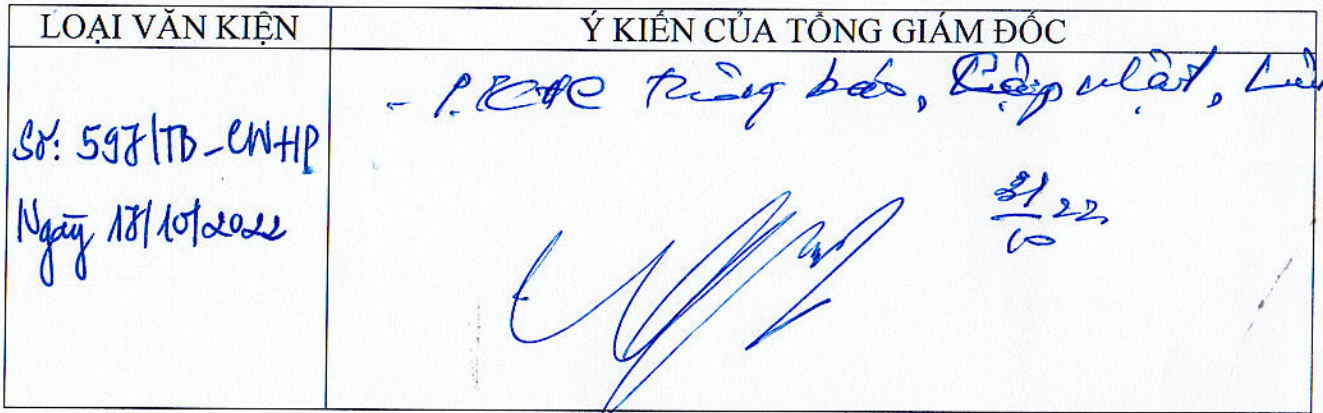 LOẠI VĂN KIỆN
Ý KIẾN CỦA TỔNG GIÁM ĐỐC
Số: 597/TB-CNHP
Ngày 17/10/2022
- P. TCHC thông báo, cập nhật, lưu
31/10 22